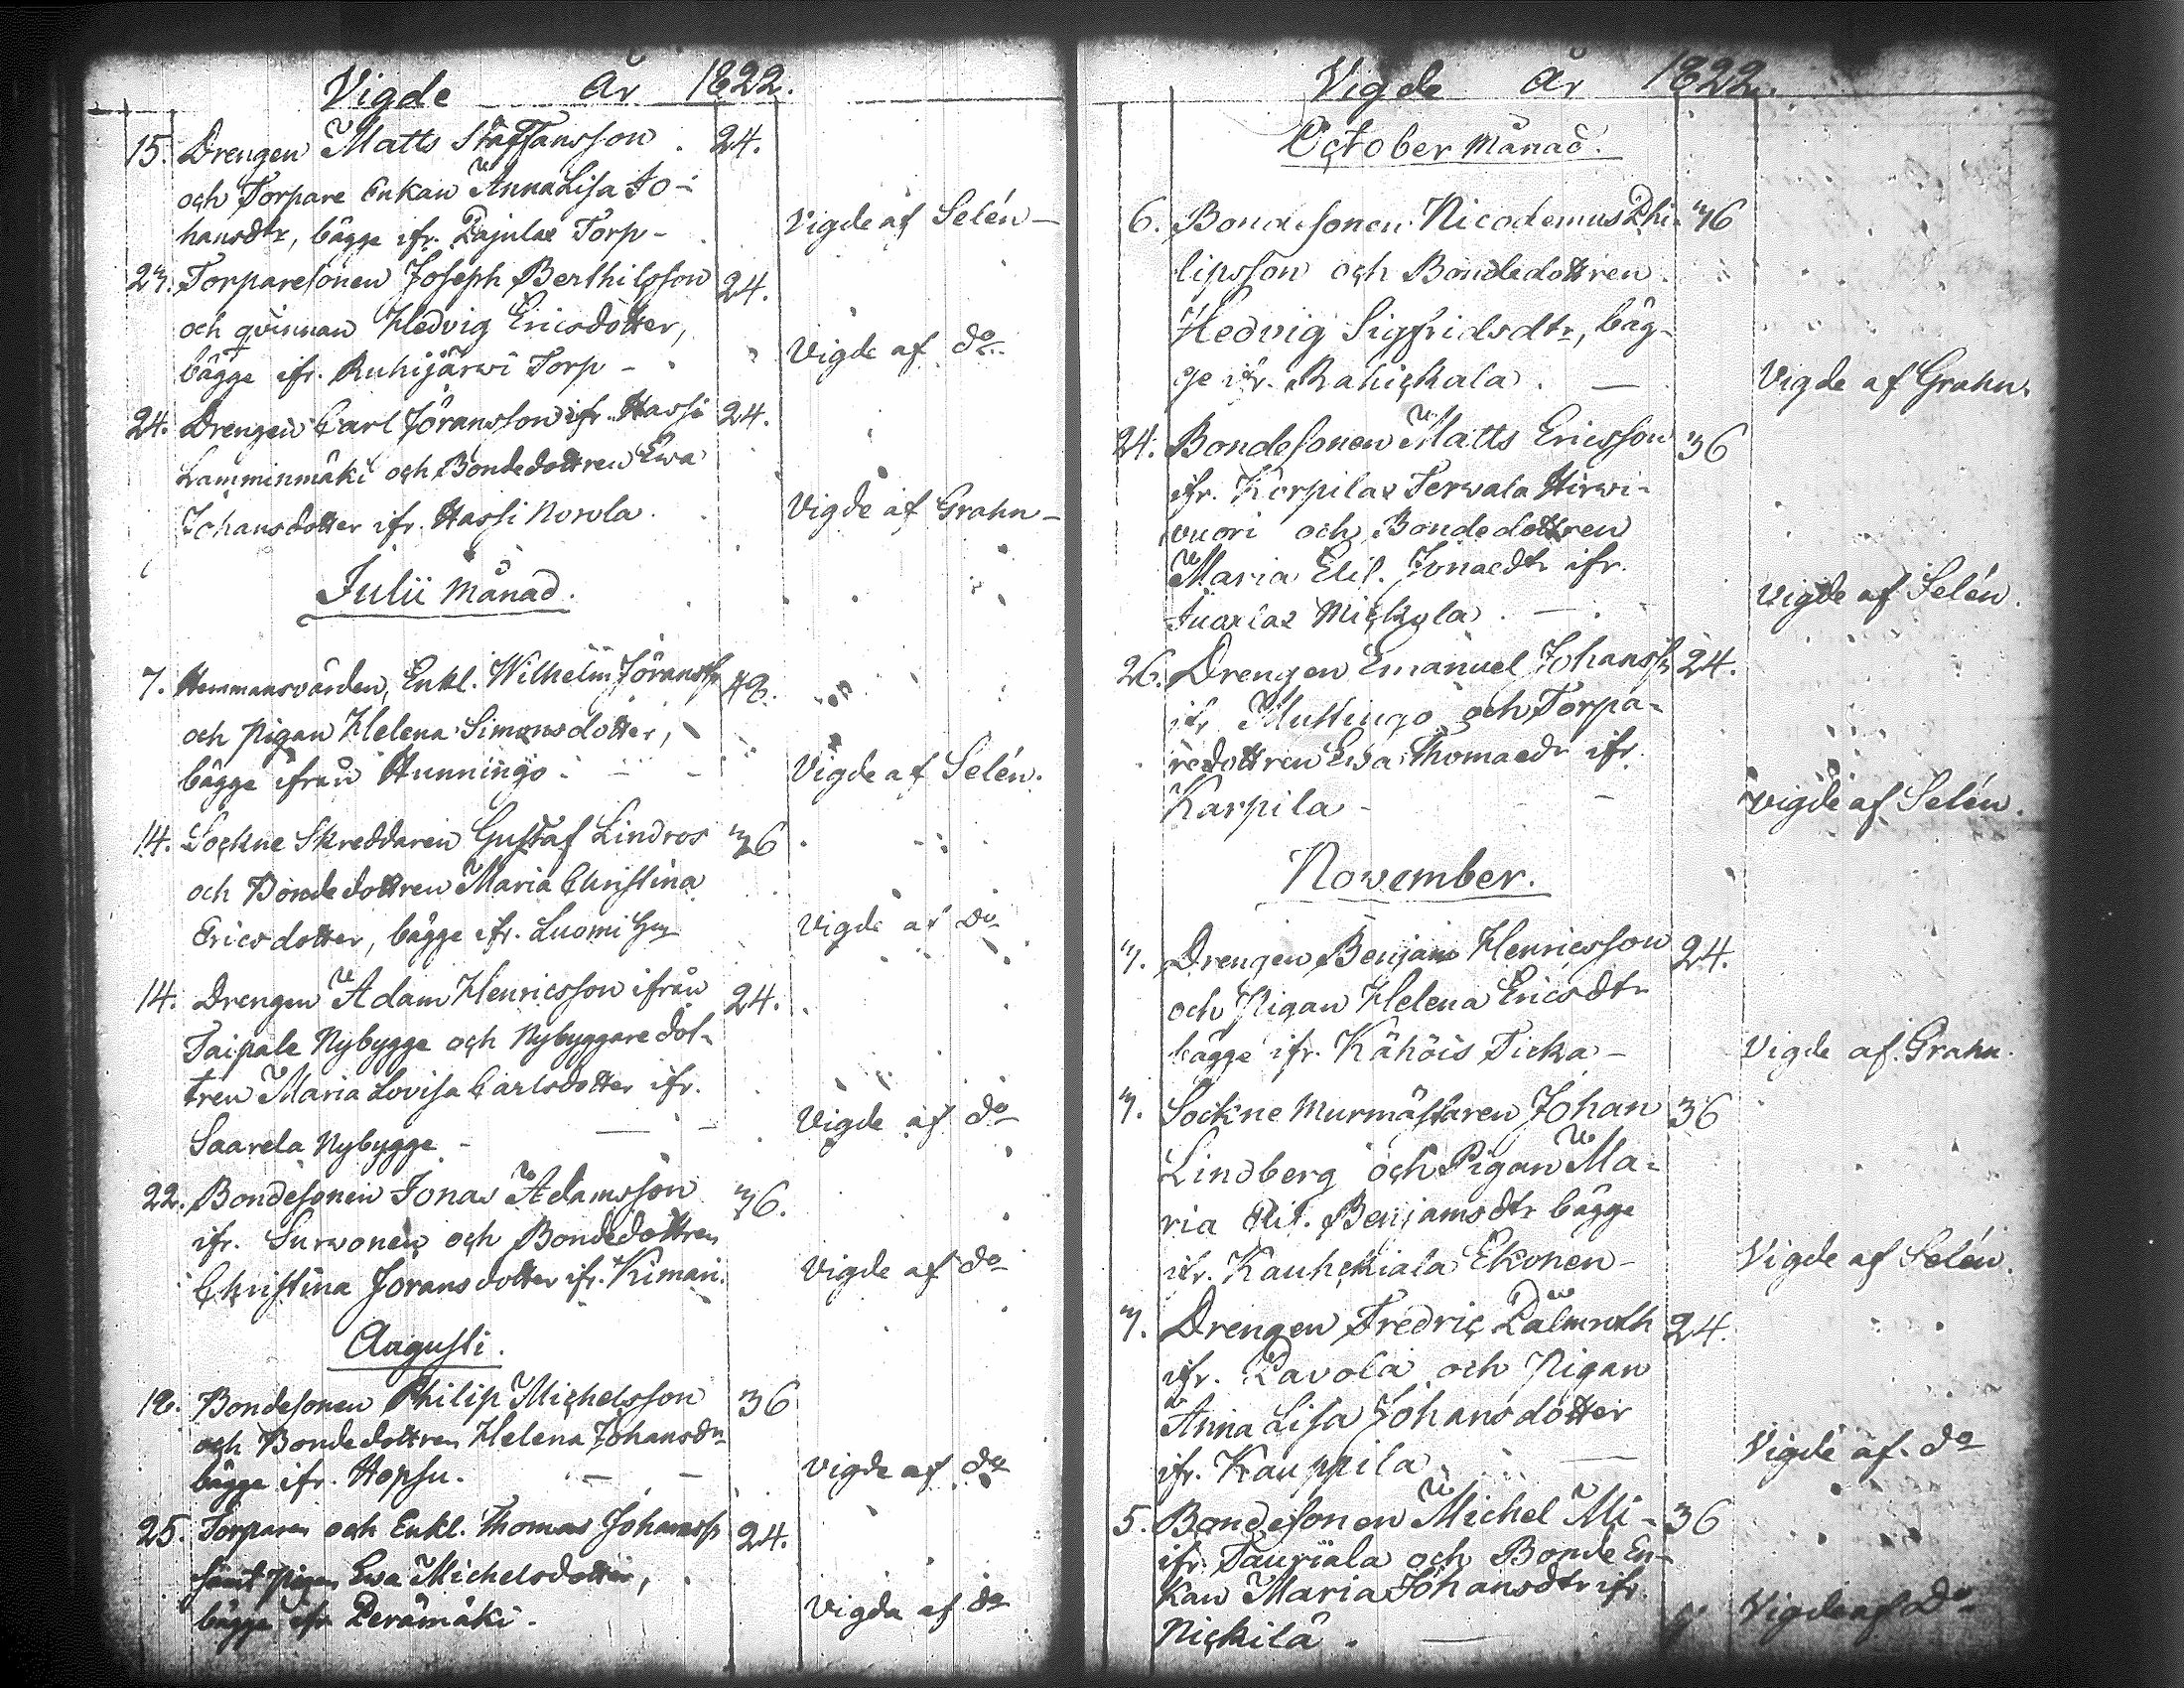 Vigde År 1822.
15. Drengen Matts Staffansson 24.
och Torpare Enkan Anna Lisa Jo-
hansdtr, bägge ifr. Pajulax Torp - Vigde af Selén -
23. Torparesonen Joseph Berthilsson 24.
och qvinnan Hedvig Ericsdotter,
bägge ifr. Ruhijärwi Torp - Vigde af do
24. Drengen Carl Jöransson ifr. Hassi 24.
Lamminmäki och Bondedottren Ewa
Johansdotter ifr. Hassi Norola. Vigde af Grahn -
Julii Månad.
7. Hemmansvärden, Enkl. Wilhelm Jöranss. 48.
och pigan Helena Simonsdotter,
bägge ifrån Hunningo. Vigde af Selén.
14. Sockne Skreddaren Gustaf Lindros 36
och Bondedottren Maria Christina
Ericsdotter, bägge ifr. Luomi Vigde af do
14. Drengen Adam Henricsson ifrån 24.
Taipale Nybygge och Nybyggaredot-
tren Maria Lovisa Carlsdotter ifr.
Saarela Nybygge - Vigde af do
22. Bondesonen Jonas Adamsson 36.
ifr. Surwonen och Bondedottren
Christina Joransdotter ifr. Kimari. Vigde af do
Augusti.
18. Bondesonen Philip Michelsson 36
och Bondedottren Helena Johansdr
bägge ifr. Hopsu. Vigde af do
25. Torparen och Enkl. Thomas Johanss. 24.
samt pigan Ewa Michelsdotter,
bägge ifr Perämäki. Vigda af do
Vigde År 1822.
October Månad.
6. Bondesonen Nicodemus Phi- 36
lipsson och Bondedottren
Hedvig Sigfridsdtr, bäg-
ge ifr. Rahickala. Vigde af Grahn.
24. Bondesonen Matts Ericsson 36
ifr. Korpilax Terwala Hirwi-
vuori och Bondedottren
Maria Elis. Jonaedtr ifr.
Juarlax Mickola. Vigde af Selén.
26. Drengen Emanuel Johanss. 24.
ifr Huttingo och Torpa-
redottren Ewa Thomaedr ifr.
Karpila - Vigde af Selén.
November.
3. Drengen Benjam Henricsson 24.
och Pigan Helena Ericsdtr
bägge ifr. Kähöis Ticka - Vigde af Grahn.
3. Sockne Murmästaren Johan 36
Lindberg och Pigan Ma-
ria Elis. Benjamsdtr bägge
ifr. Kauhckiala Ekonen - Vigde af Selén.
3. Drengen Fredric Palmroth 24.
ifr. Pavola och Pigan
Anna Lisa Johansdotter
ifr. Kauppila. Vigde af do
5. Bondesonen Michel Mi- 36
ifr. Tauriala och Bonde En-
kan Maria Johansdtr ifr.
Nickilä. Vigde af Do